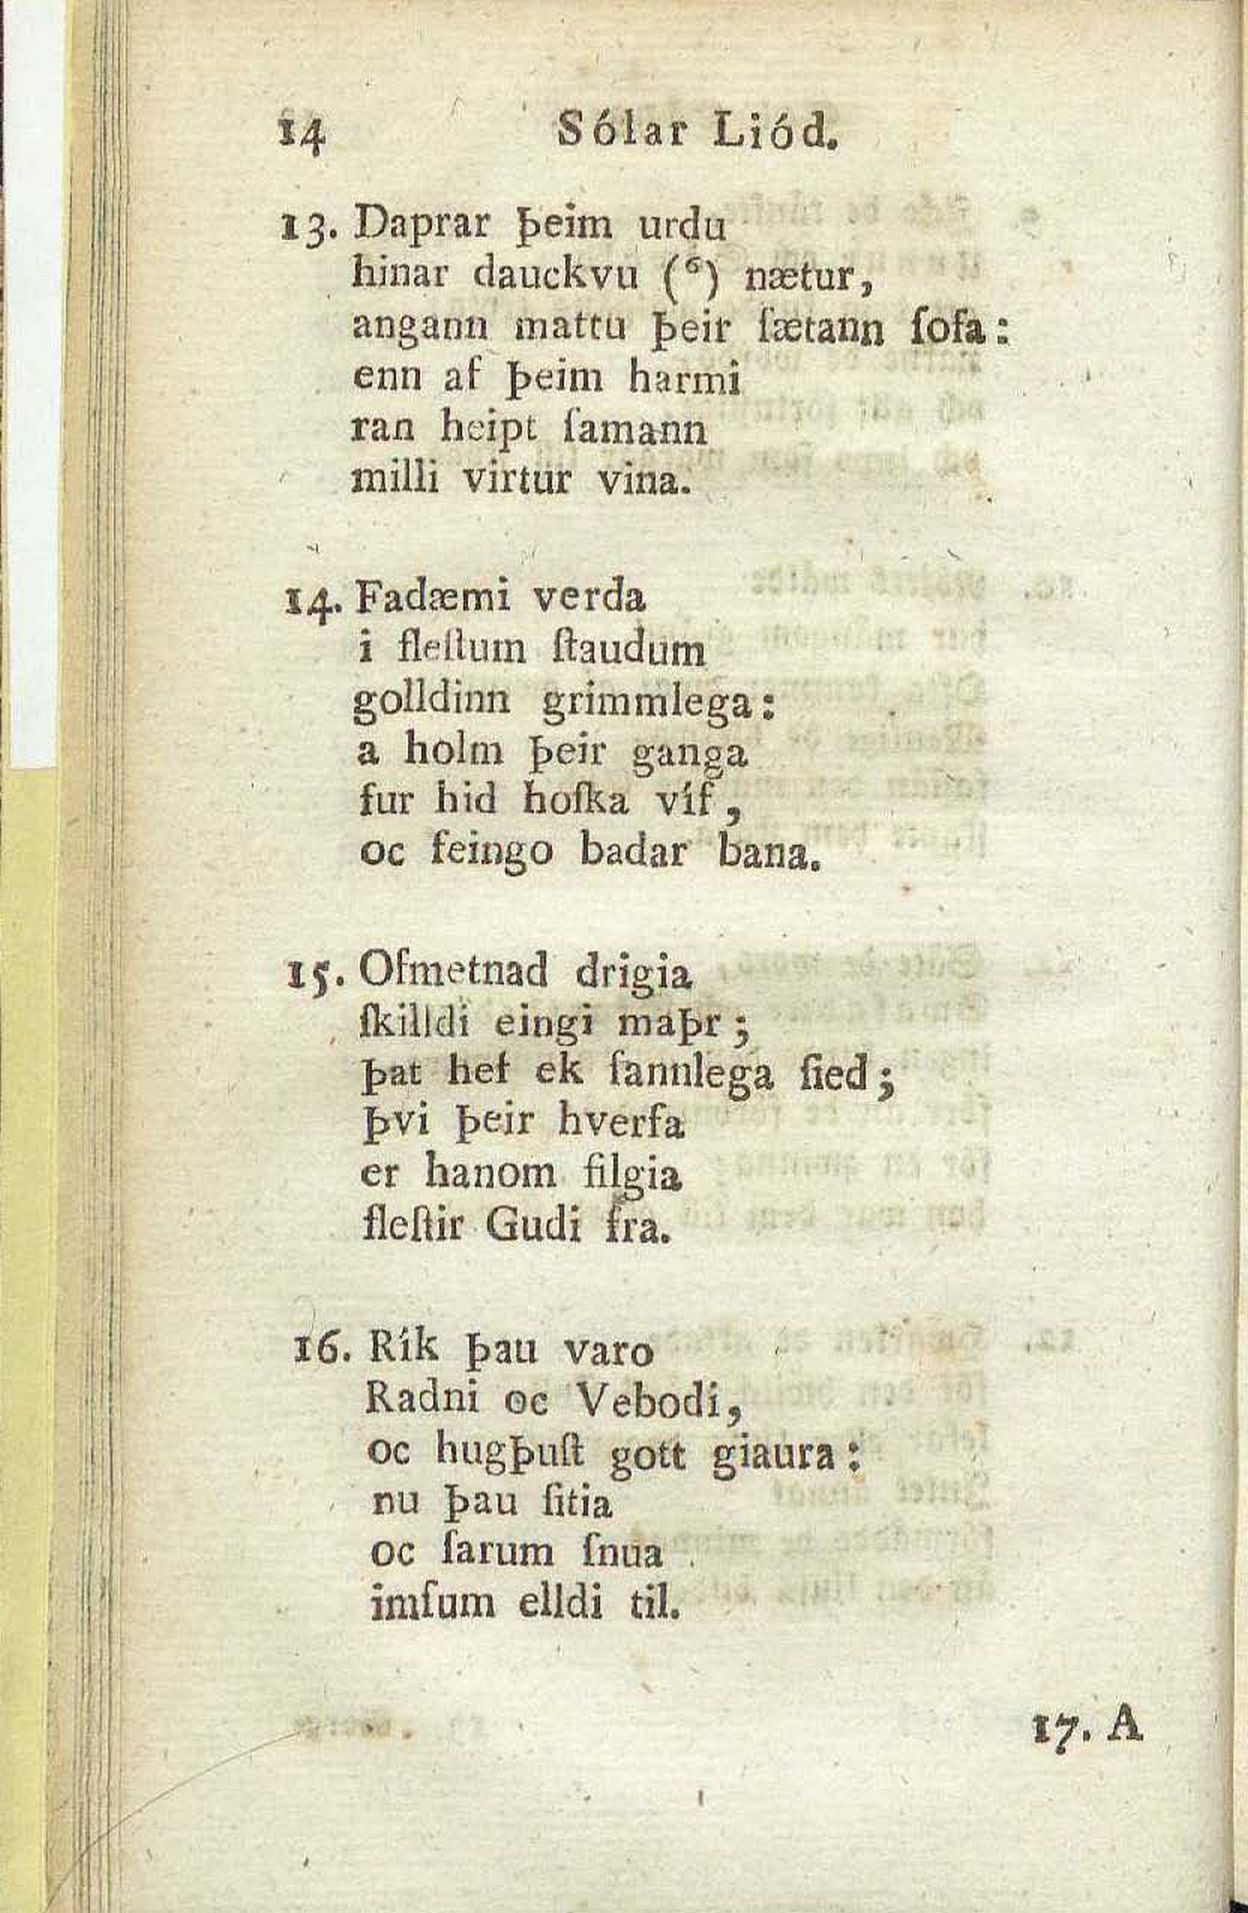 14 Sólar Liód.
13. Daprar þeim urdu
hinar dauckvu (⁶) nætur,
angann mattu þeir ſætann ſofa:
enn af þeim harmi
ran heipt ſamann
milli virtur vina.
14. Fadæmi verda
i fleſtum ſtaudum
golldinn grimmlega:
a holm þeir ganga
fur hid hoſka víf,
oc feingo badar bana.
15. Ofmetnad drigia
ſkilldi eingi maþr;
þat hef ek ſannlega ſied;
þvi þeir hverfa
er hanom filgia
fleſtir Gudi fra.
16. Rík þau varo
Radni oc Vebodi,
oc hugþuſt gott giaura:
nu þau ſitia
oc ſarum ſnua
imſum elldi til.
17. A